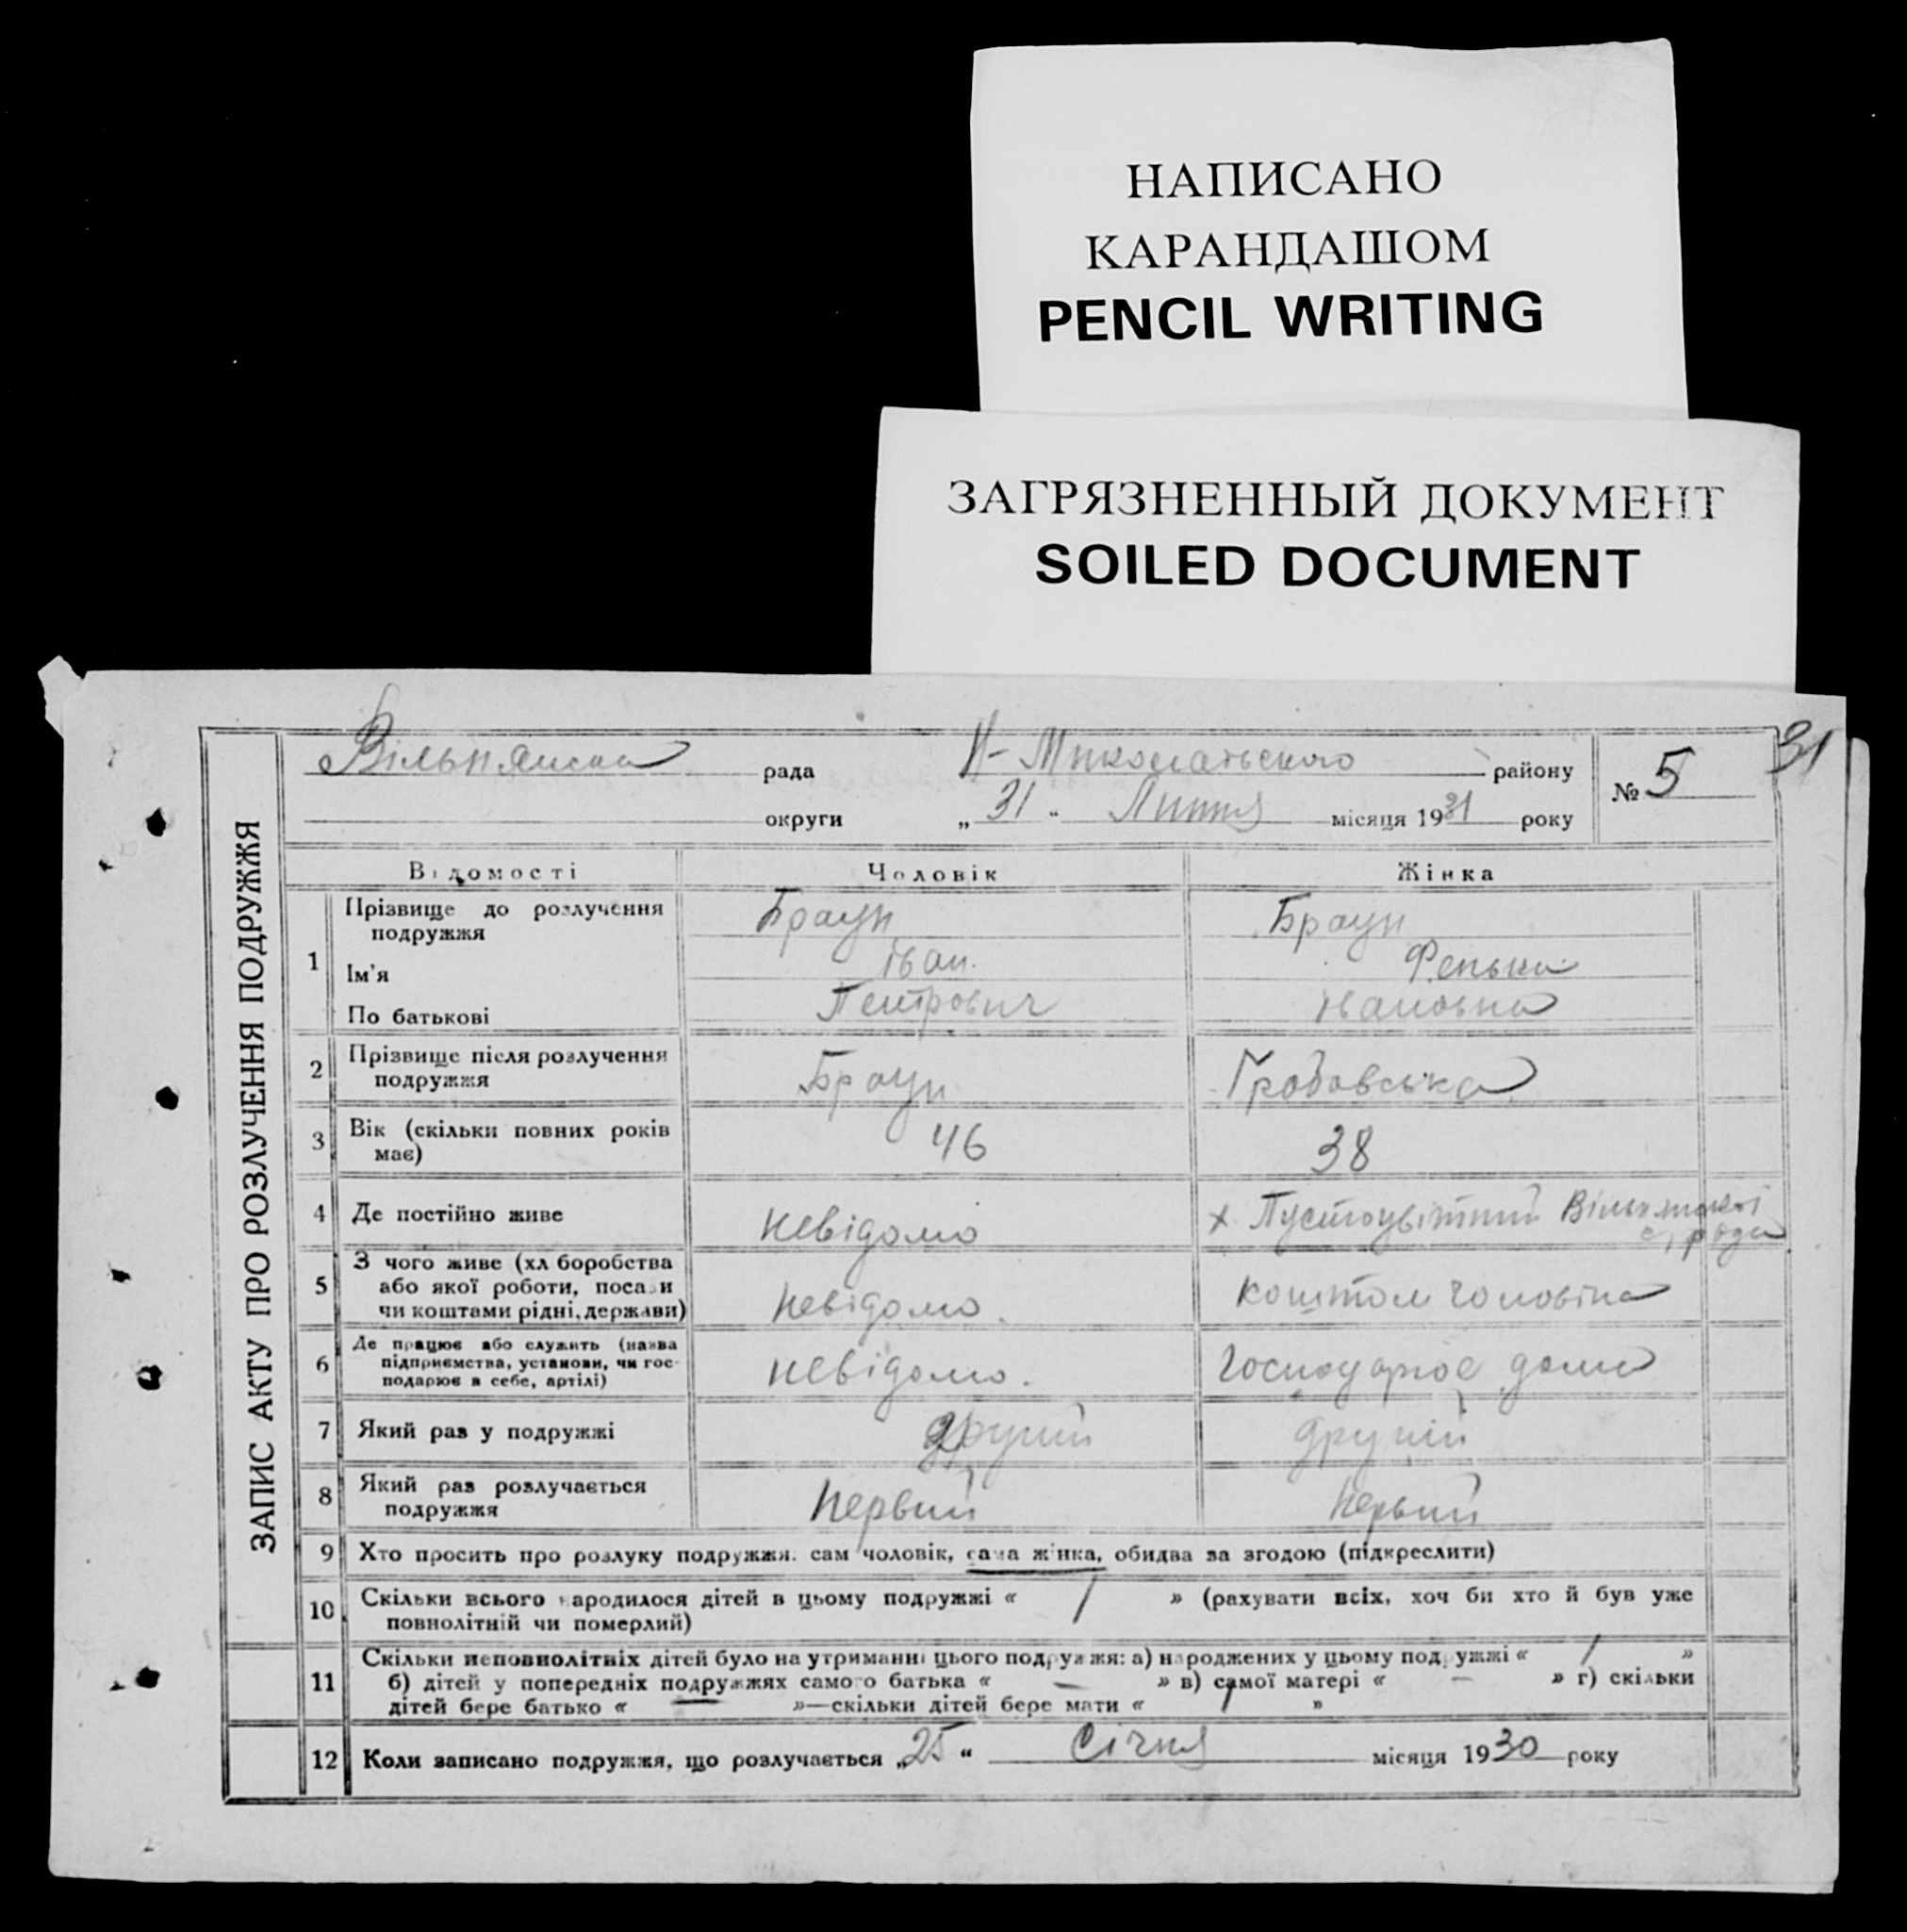 НАПИСАНО
КАРАНДАШОМ
PENCIL WRITING
ЗАГРЯЗНЕННЫЙ ДОКУМЕНТ
SOILED DOCUMENT
31
ЗАПИС АКТУ ПРО РОЗЛУЧЕННЯ ПОДРУЖЖЯ
рада Н- району № 5
округи „ 31 “ Липня місяця 1931 року
Відомості Чоловік Жінка
1 Прізвище до розлучення подружжя Браун Браун
Ім'я Іван. Фенька
По батькові Петрович Івановна
2 Прізвище після розлучення подружжя Браун Гробовська
3 Вік (скільки повних років має) 46 38
4 Де постійно живе невідомо х. Пустоцвітний рада
5 З чого живе (хліборобства або якої роботи, посади чи коштами рідні, держави) невідомо. коштом чоловіка
6 Де працює або служить (назва підприємства, установи, чи господарює в себе, артілі) невідомо. господарює дома
7 Який раз у подружжі другий другий
8 Який раз розлучається подружжя первий первий
9 Хто просить про розлуку подружжя: сам чоловік, сама жінка, обидва за згодою (підкреслити)
10 Скільки всього народилося дітей в цьому подружжі « 1 » (рахувати всіх, хоч би хто й був уже
повнолітній чи померлий)
11 Скільки неповнолітніх дітей було на утриманні цього подружжя: а) народжених у цьому подружжі « 1 »
б) дітей у попередніх подружжях самого батька « — » в) самої матері « — » г) скільки
дітей бере батько « — »—скільки дітей бере мати « 1 »
12 Коли записано подружжя, що розлучається „ 25 “ Січня місяця 1930 року